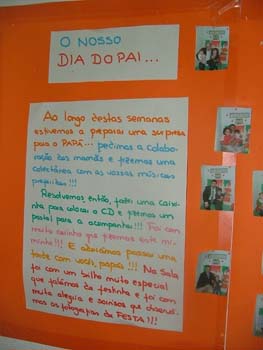 O NOSSO
DIA DO PAI...
Ao longo destas semanas
estivemos a preparar uma surpresa
para o PAPÁ... pedimos a colabo-
ração das mamãs e fizemos uma
colectânea com as vossas músicas
preferidas!!!
Resolvemos, então, fazer uma caixi-
nha para colocar o CD e fizemos um
postal para a acompanhar!!! Foi com
muito carinho que fizemos este mi-
minho!!! E adorámos passar uma
tarde com vocês, papás!!! Na Sala
foi com um brilho muito especial
que falámos da festinha e foi com
muita alegria e sorrisos que
as fotografias da FESTA!!!